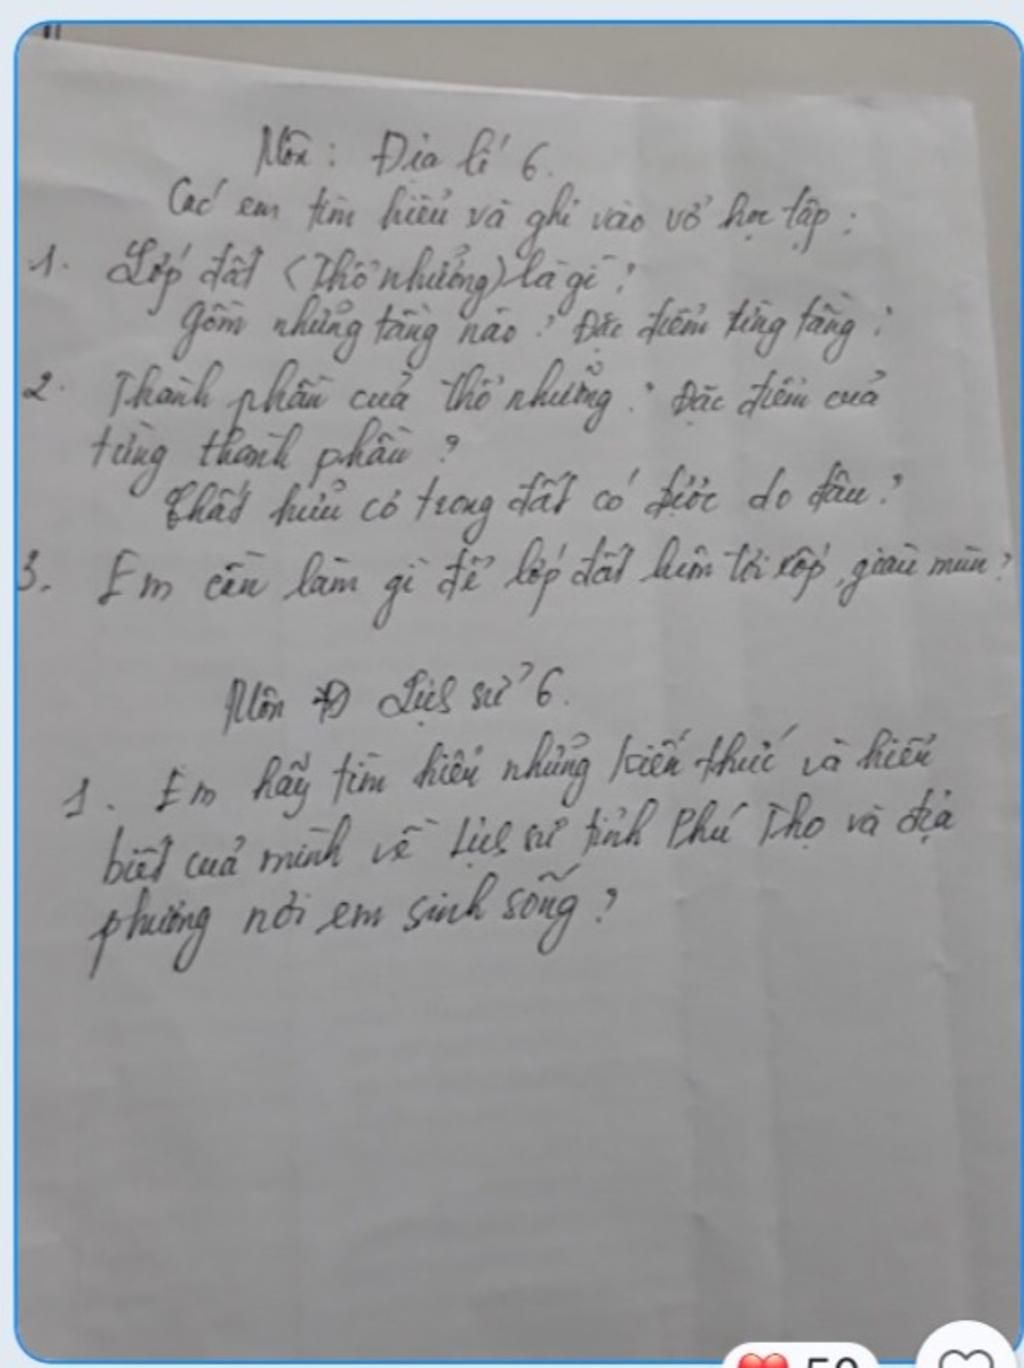 Môn: Địa lí 6.
Các em tìm hiểu và ghi vào vở học tập:
1. Lớp đất (Thổ nhưỡng) là gì?
Gồm những tầng nào? Đặc điểm từng tầng?
2. Thành phần của thổ nhưỡng? Đặc điểm của
từng thành phần?
Chất hữu có trong đất có được do đâu?
3. Em cần làm gì để lớp đất luôn tơi xốp, giàu mùn?
Môn Lịch sử 6.
1. Em hãy tìm hiểu những kiến thức và hiểu
biết của mình về Lịch sử tỉnh Phú Thọ và địa
phương nơi em sinh sống?